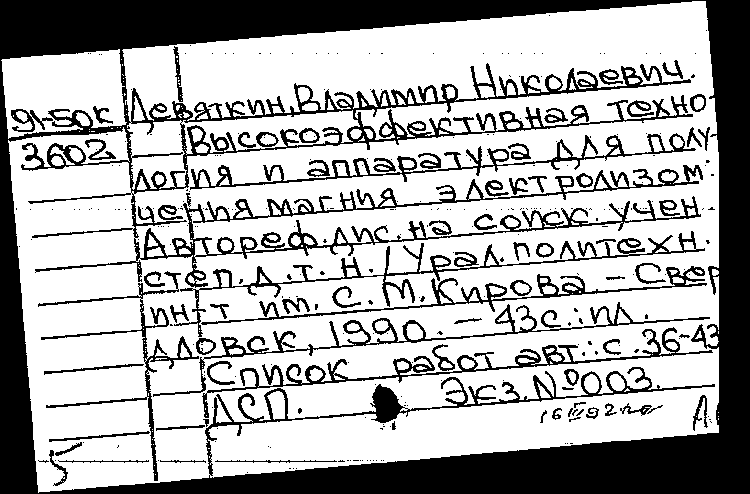 91-50к Девяткин, Владимир Николаевич.
3602 Высокоэффективная техно-
логия и аппаратура для полу-
чения магния электролизом:
Автореф. дис. на соиск. учен.
степ. д. т. н. / Урал. политехн.
ин-т им. С. М. Кирова. – Свер
дловск, 1990. – 43 с.: ил.
Список работ авт.: с. 36-43
ДСП. Экз. №003.
5